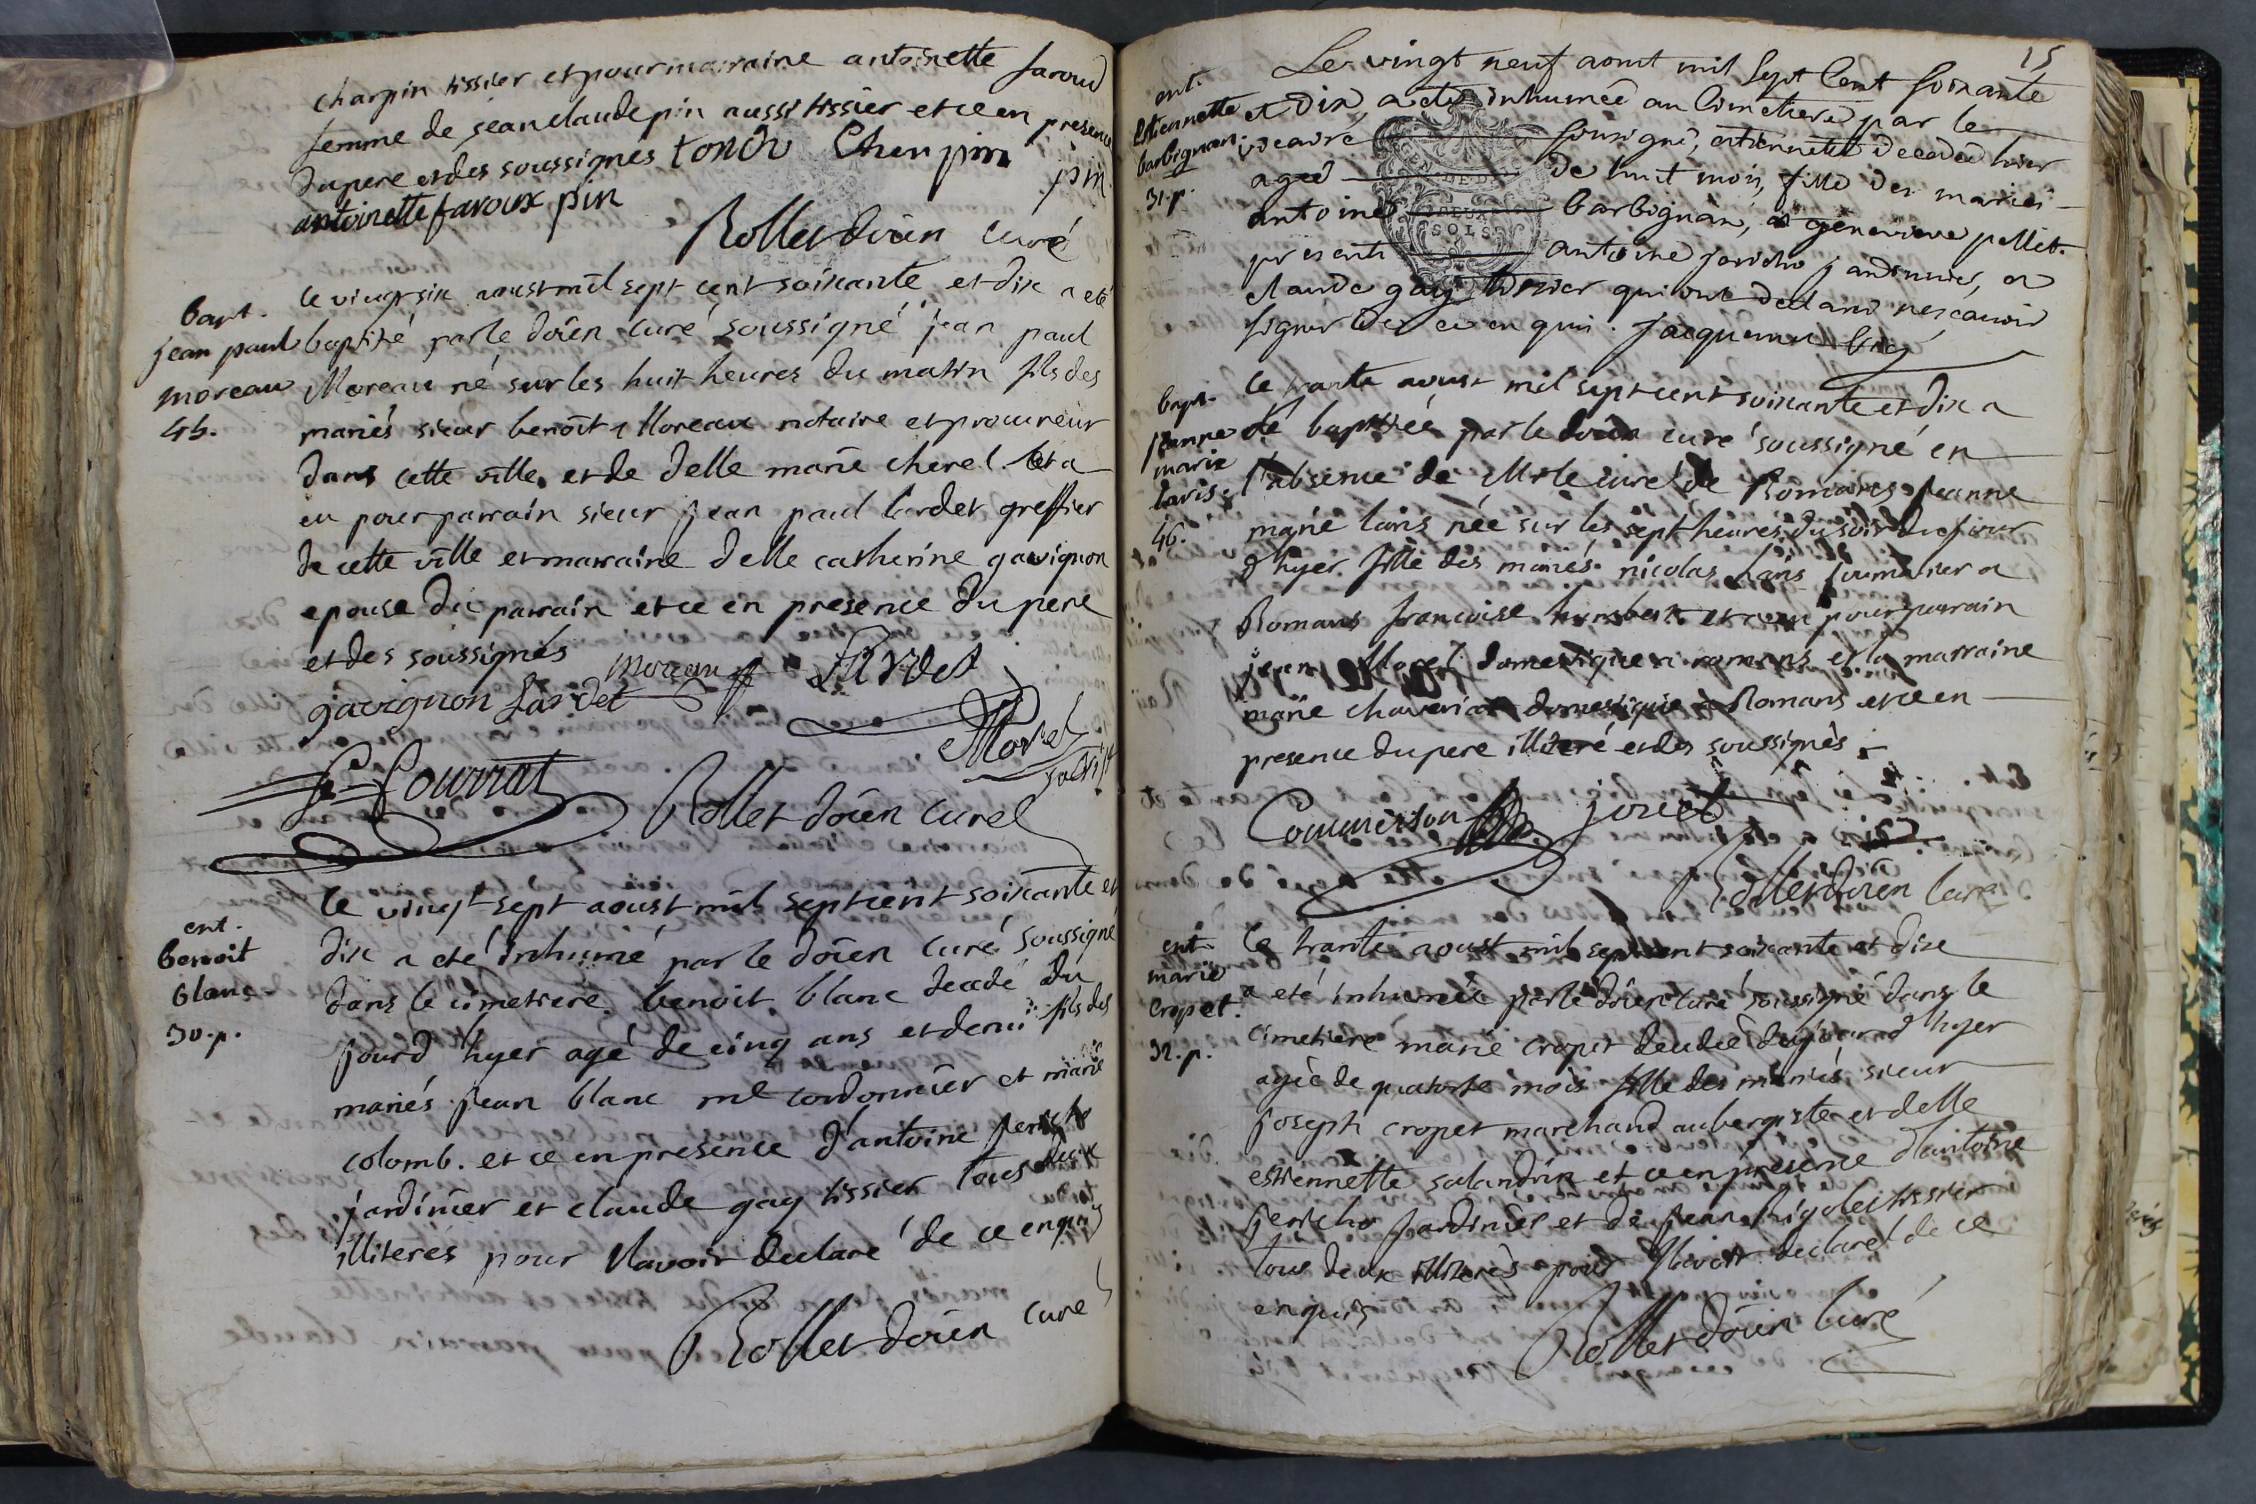 charpin tissier et pour marraine antoinette faroud
femme de jean claude pin aussi tissier et ce en presence
du pere et des soussignés tondu Charpin
pin
antoinette faroux pin
Rollet doïen curé
bapt.
jean paul
moreau
45.
le vingt six aoust mil sept cent soixante et dix a eté
baptisé par le doïen curé soussigné jean paul
Moreau né sur les huit heures du matin fils des
mariés sieur benoît Moreau notaire et procureur
dans cette ville et de delle marie cherel et a
eu pour parrain sieur jean paul lardet greffier
de cette ville et marraine delle catherine gavignon
epouse du parrain et ce en presence du pere
et des soussignés
moreau Lardet
gavignon Lardet
Morel
Rollet doïen curé
ent.
benoit
blanc
30.p.
le vingt sept aoust mil sept cent soixante et
dix a eté inhumé par le doïen curé soussigné
dans le cimetiere benoit blanc decedé du
jourd'hyer agé de cinq ans et demi fils des
mariés jean blanc me cordonnier et marie
colomb. et ce en presence d'antoine jericho
jardinier et claude gay tissier tous deux
illiterés pour l'avoir declaré de ce enquis
Rollet doïen curé
15
ent.
Estiennette
barbignan
31.p.
Le vingt neuf aout mil sept cent soixante
et dix, a eté inhumée au cimetiere par le
vicaire soussigné, estiennette decedée hier
ageé de huit mois, fille des mariés
antoine barbignan, et genevieve pellet.
presents antoine jericho jardinier, et
claude gay tissier qui ont declaré ne scavoir
signer de ce enquis. jacquemet vic
GEN. DE D
DEUX
SOLS
bapt.
jeanne
marie
laris.
46.
le trante aoust mil sept cent soixante et dix a
eté baptisée par le doïen curé soussigné en
l'absence de Mr le curé de Romans jeanne
marie laris née sur les sept heures du soir du jour
d'hyer fille des mariés nicolas laris journalier a
Romans francoise humbert et a eu pour parrain
jean Morel domestique a romans et la marraine
marie domestique a Romans et ce en
presence du pere illiteré et des soussignés
Commerson joüet
Rollet doïen curé
ent.
marie
cropet.
32.p.
le trante aoust mil sept cent soixante et dix
a eté inhumée par le doïen curé soussigné dans le
cimetiere marie cropet decedée du jourd'hyer
agée de quatorse mois fille des mariés sieur
joseph cropet marchand aubergiste et delle
estiennette salandrin et ce en presence d'antoine
jericho jardinier et de jean rigolet tissier
tous deux illiterés pour l'avoir declaré de ce
enquis
Rollet doïen curé